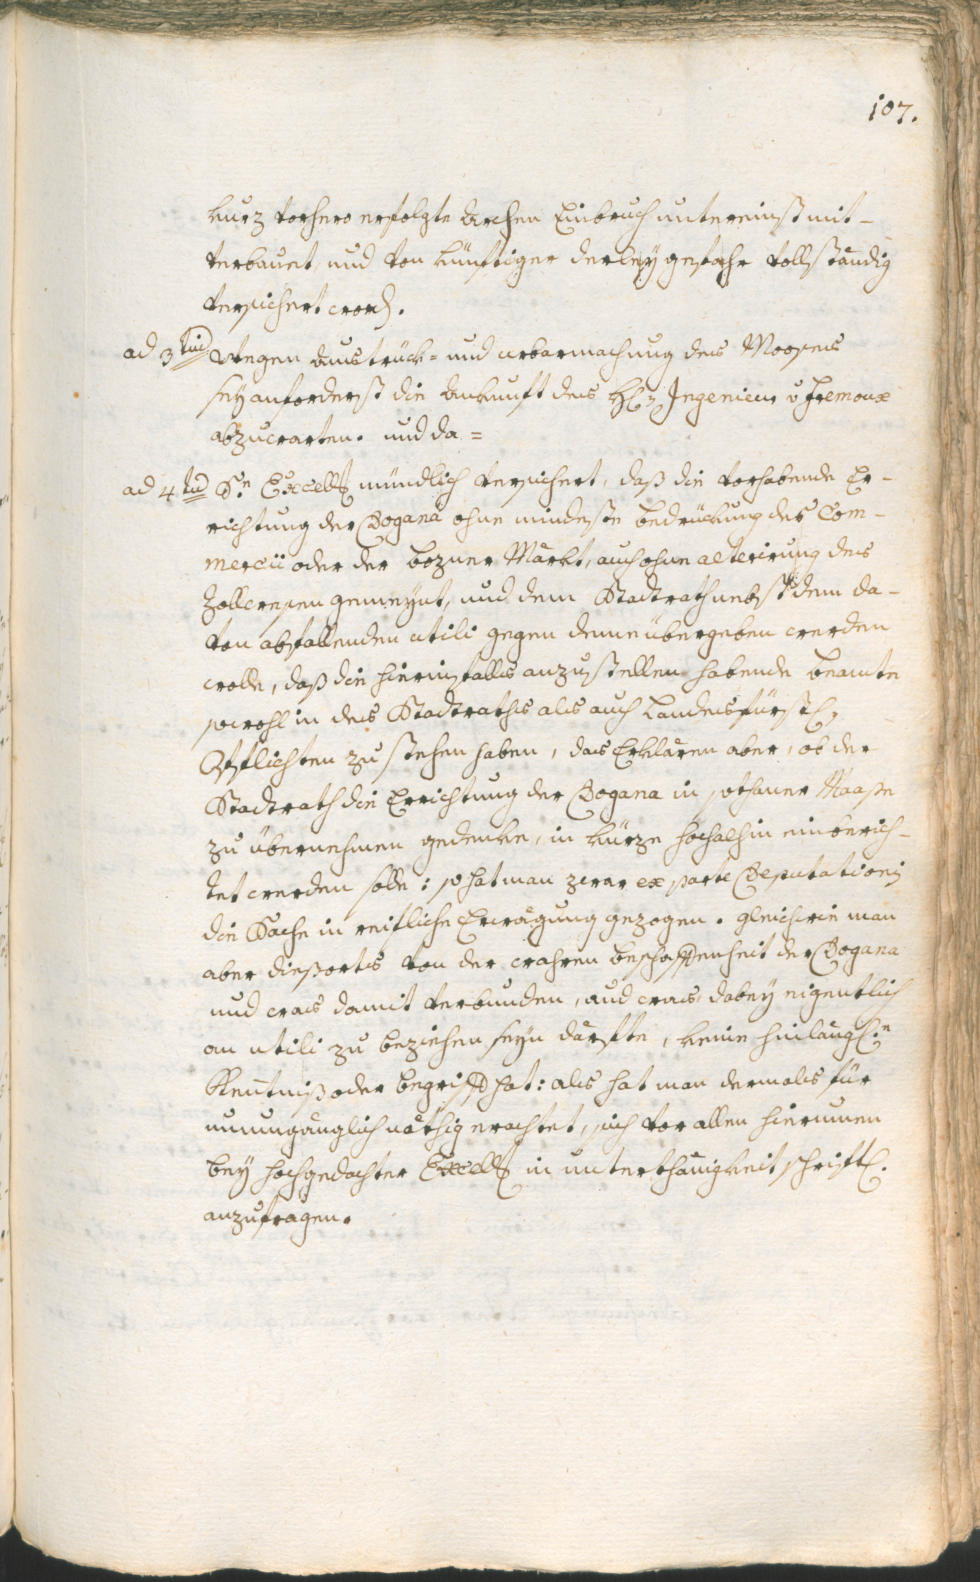 107.
kurz vorhero erfolgte Archen Einbruch untereinst mit-
verbauet, und von künftiger derley gefahr vollständig
versichert werd.
ad 3tiũ Wegen Austrück= und urbarmachung des Mooses
sey anforderst die Ankunft des H: Ingenieur v Fremoux
abzuwarten. und da=
ad 4tũ Se Excell mündlich versichert, daß die vorhabende Er-
richtung der Dogana ohne mindeste bedrückung des Com-
mercii oder der bozner Märkt, auch ohne alterirung des
Zollwesen gemeynt, und dem Stadtrath nebst dem da-
von abfallenden utili gegen deme übergeben werden
wolle, daß die hierinfalls anzustellen habende beamte
sowohl in des Stadtraths als auch Landesfürstl:
Pflichten zu stehen haben, das Erklären aber, ob der
Stadtrath die Errichtung der Dogana in sothaner Maaße
zu übernehmen gedenke, in kürze hochselbin einberich-
tet werden solle: so hat man zwar ex parte Deputationis
die Sache in reifliche Erwägung gezogen. gleichwie man
aber dießorts von der wahren beschaffenheit der Dogana
und was damit verbunden, und was dabey eigentlich
an utili zu beziehen seyn därfte, keine hinlängl:e
Kentniß oder begriff hat: als hat man dermals für
unumgänglich nöthig erachtet, sich vor allen hierinnen
bey hochgedachter Excell in unterthänigkeit schriftl.
anzufragen.